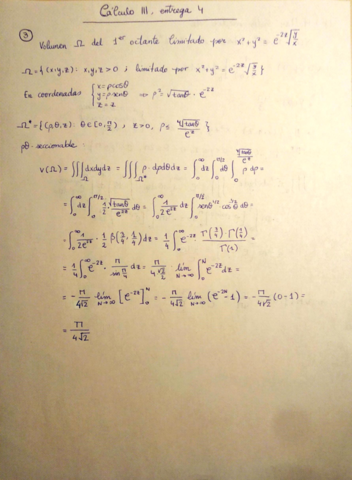 Cálculo III, entrega 4
③ Volumen Ω del 1er octante limitado por x²+y² = e^{-2z}√(y/x)
Ω = {(x,y,z): x,y,z>0 ; limitado por x²+y² = e^{-2z}√(y/x)}
En coordenadas { x=ρcosθ
y=ρsenθ ⇒ ρ² = √tanθ · e^{-2z}
z=z
Ω* = {(ρ,θ,z): θ∈[0,π/2) ; z>0, ρ≤ ⁴√tanθ/e^z }
ρθ-seccionable
V(Ω) = ∭_Ω dxdydz = ∭_Ω* ρ·dρdθdz = ∫₀^∞ dz ∫₀^{π/2} dθ ∫₀^{⁴√tanθ/e^z} ρ dρ =
= ∫₀^∞ dz ∫₀^{π/2} 1/2 · √tanθ/e^{2z} dθ = ∫₀^∞ 1/(2e^{2z}) dz ∫₀^{π/2} senθ^{1/2} · cosθ^{-1/2} dθ =
= ∫₀^∞ 1/(2e^{2z}) · 1/2 β(3/4, 1/4) dz = 1/4 ∫₀^∞ e^{-2z} · Γ(3/4)·Γ(1/4)/Γ(1) =
= 1/4 ∫₀^∞ e^{-2z} · π/(sin π/4) dz = π/4 √2 lím_{N→∞} ∫₀^N e^{-2z} dz =
= -π/(4√2) lím_{N→∞} [e^{-2z}]₀^N = -π/(4√2) lím_{N→∞} (e^{-2N}-1) = -π/(4√2) (0-1) =
= π/(4√2)